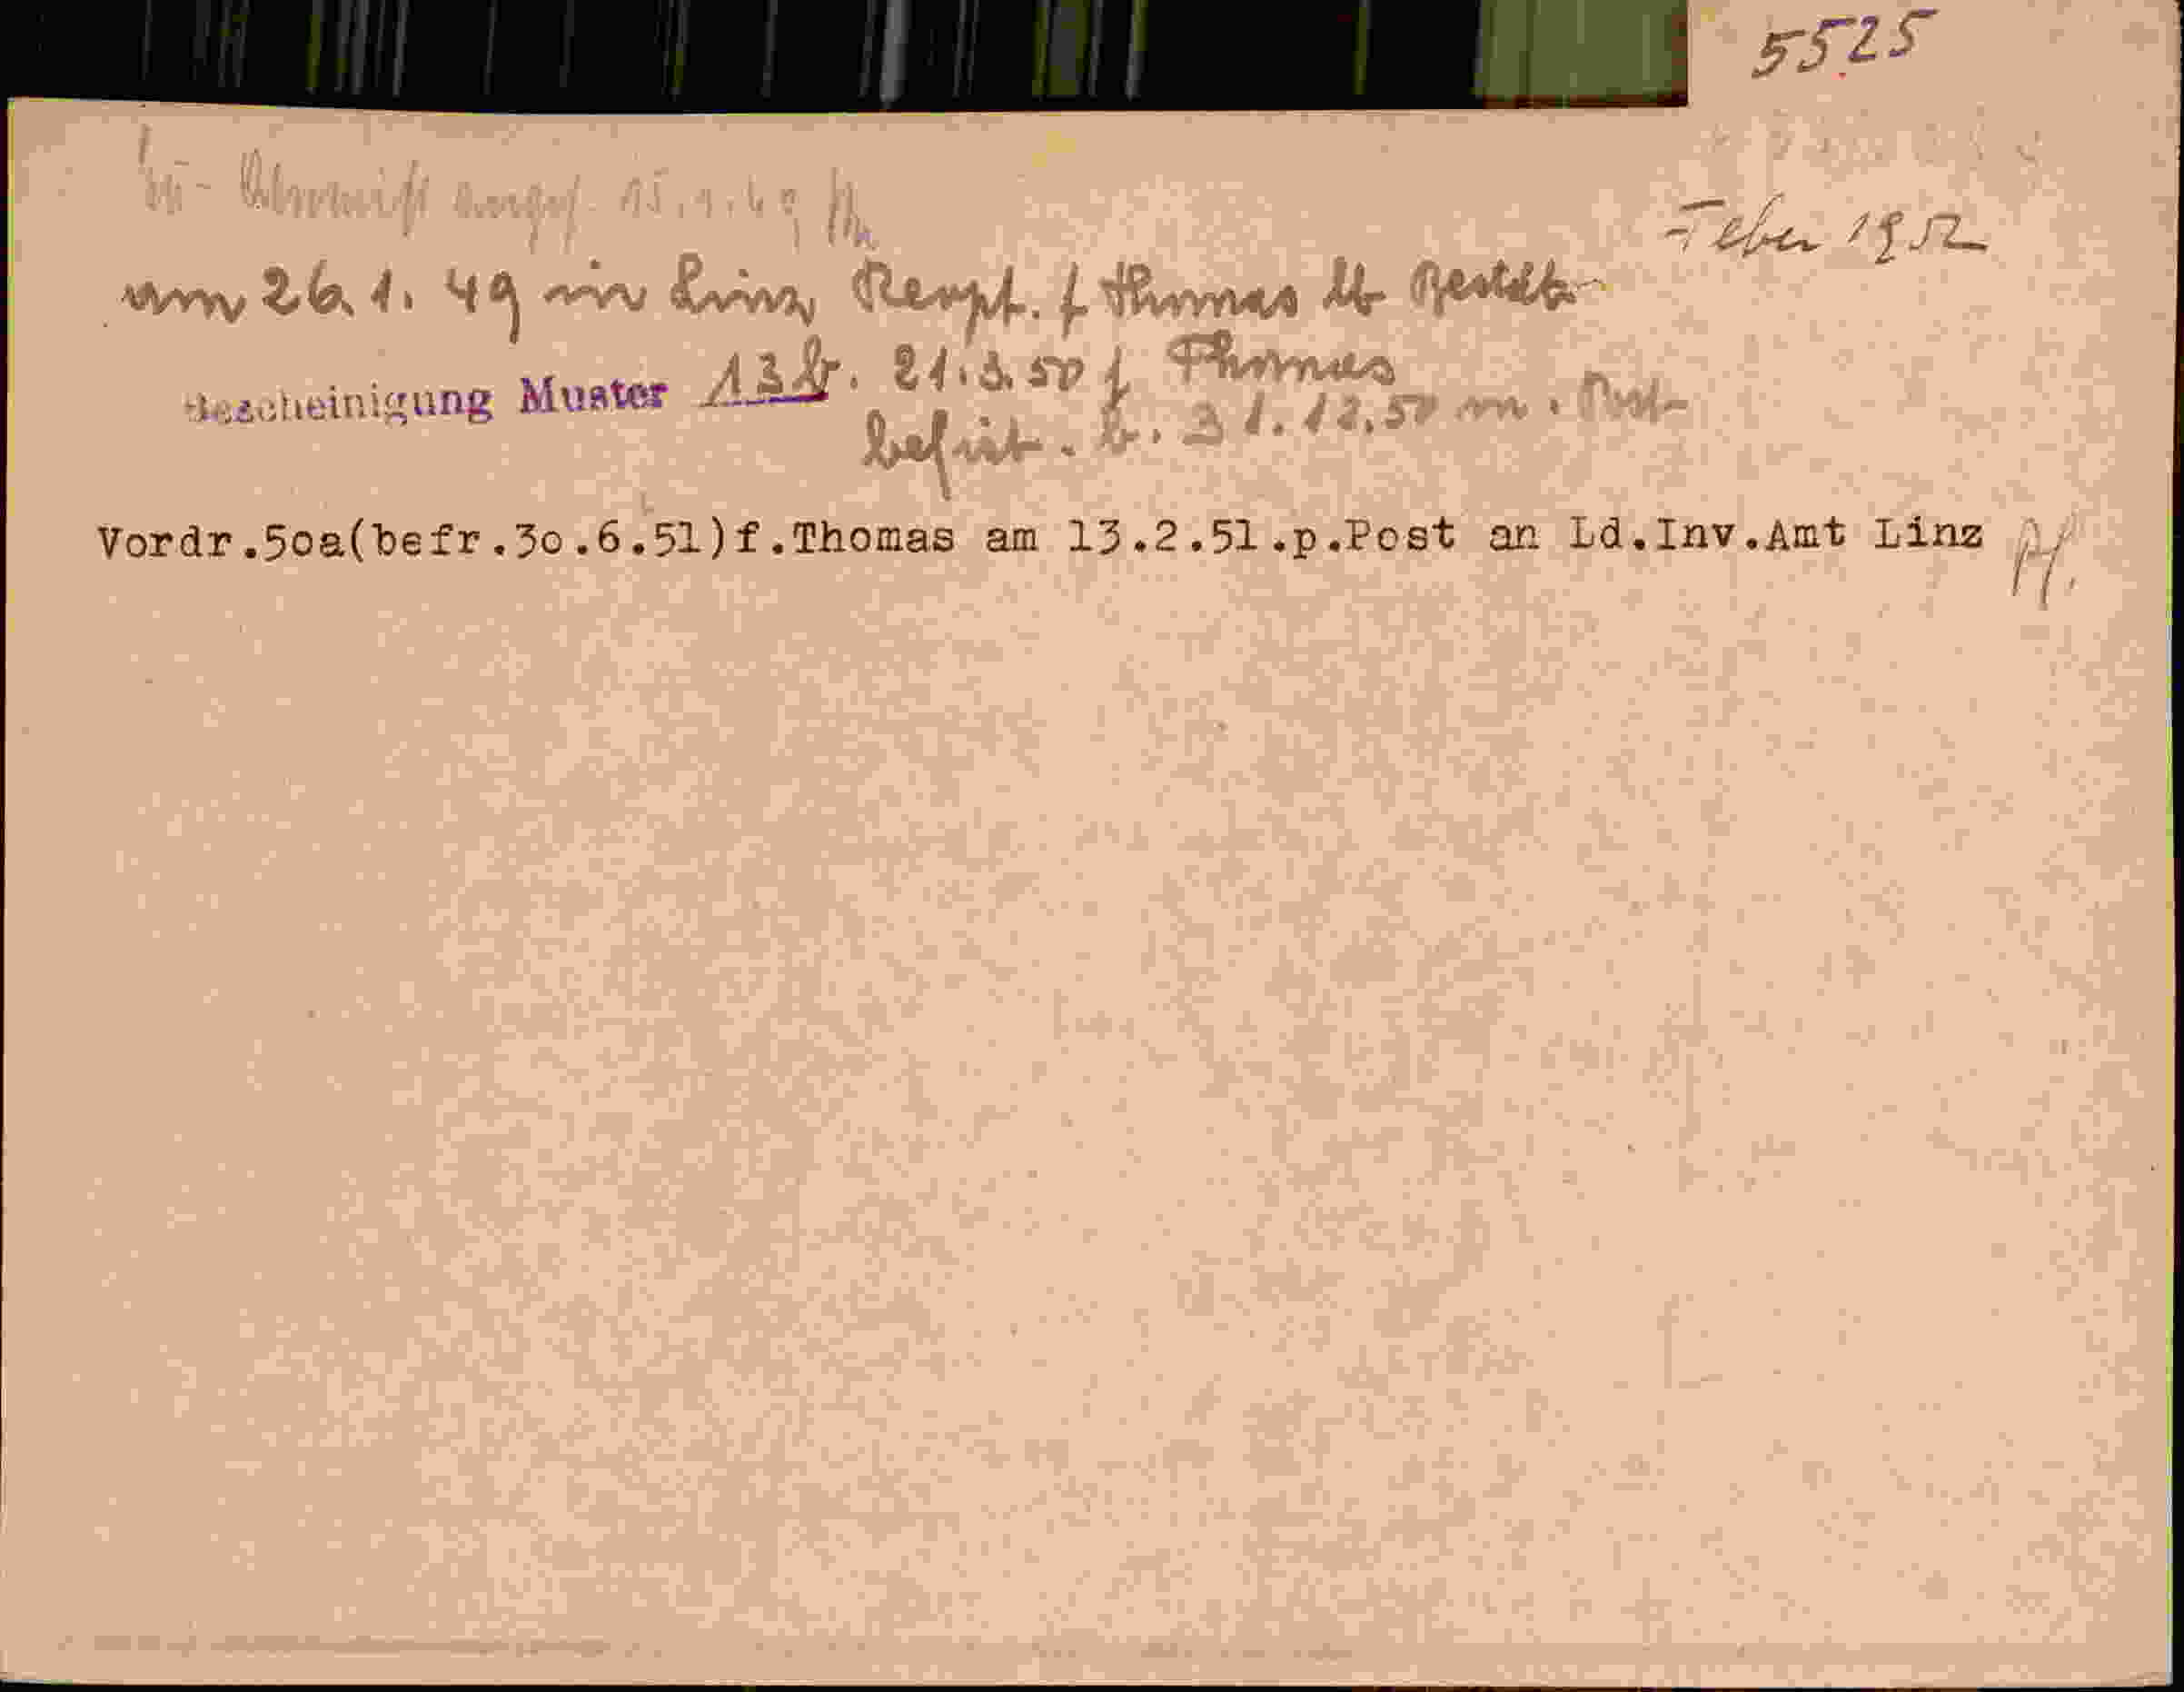 5525
Feber 1952
15.1.49
am 26.1.49 in Linz Rezpt. f Thomas
Bescheinigung Muster 13 b. 21.3.50 f Thomas
befrist. b. 31.12.50 m. Post
Vordr.50a(befr.30.6.51)f.Thomas am 13.2.51.p.Post an Ld.Inv.Amt Linz